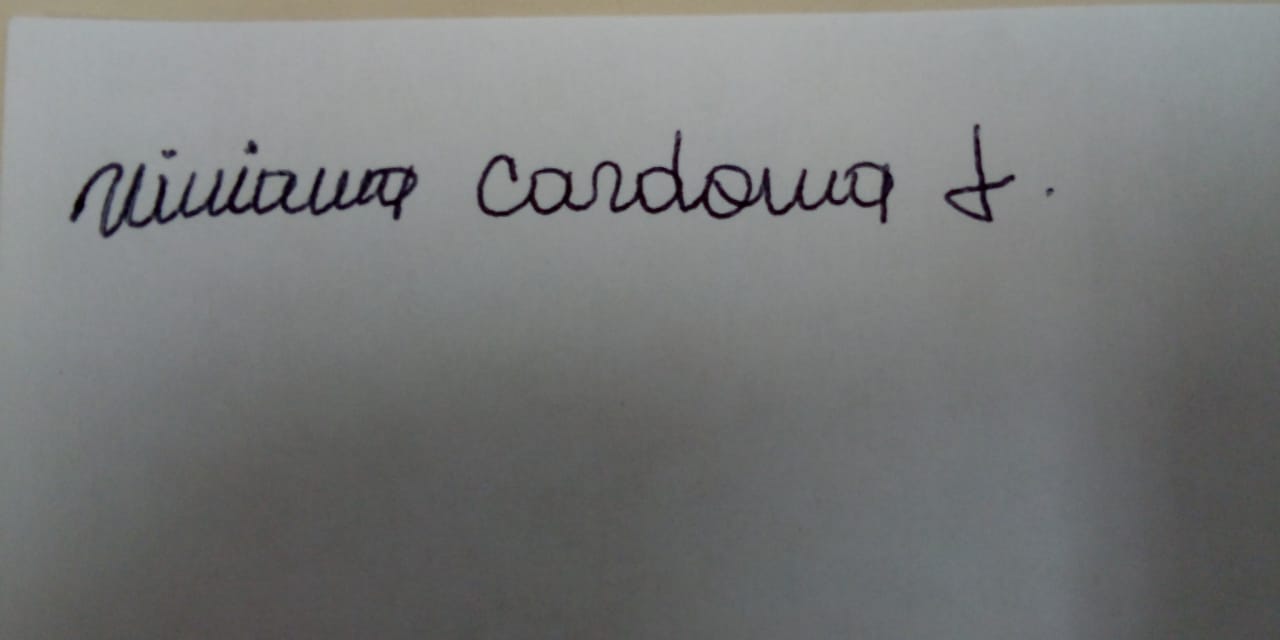 Viviana Cardona J.